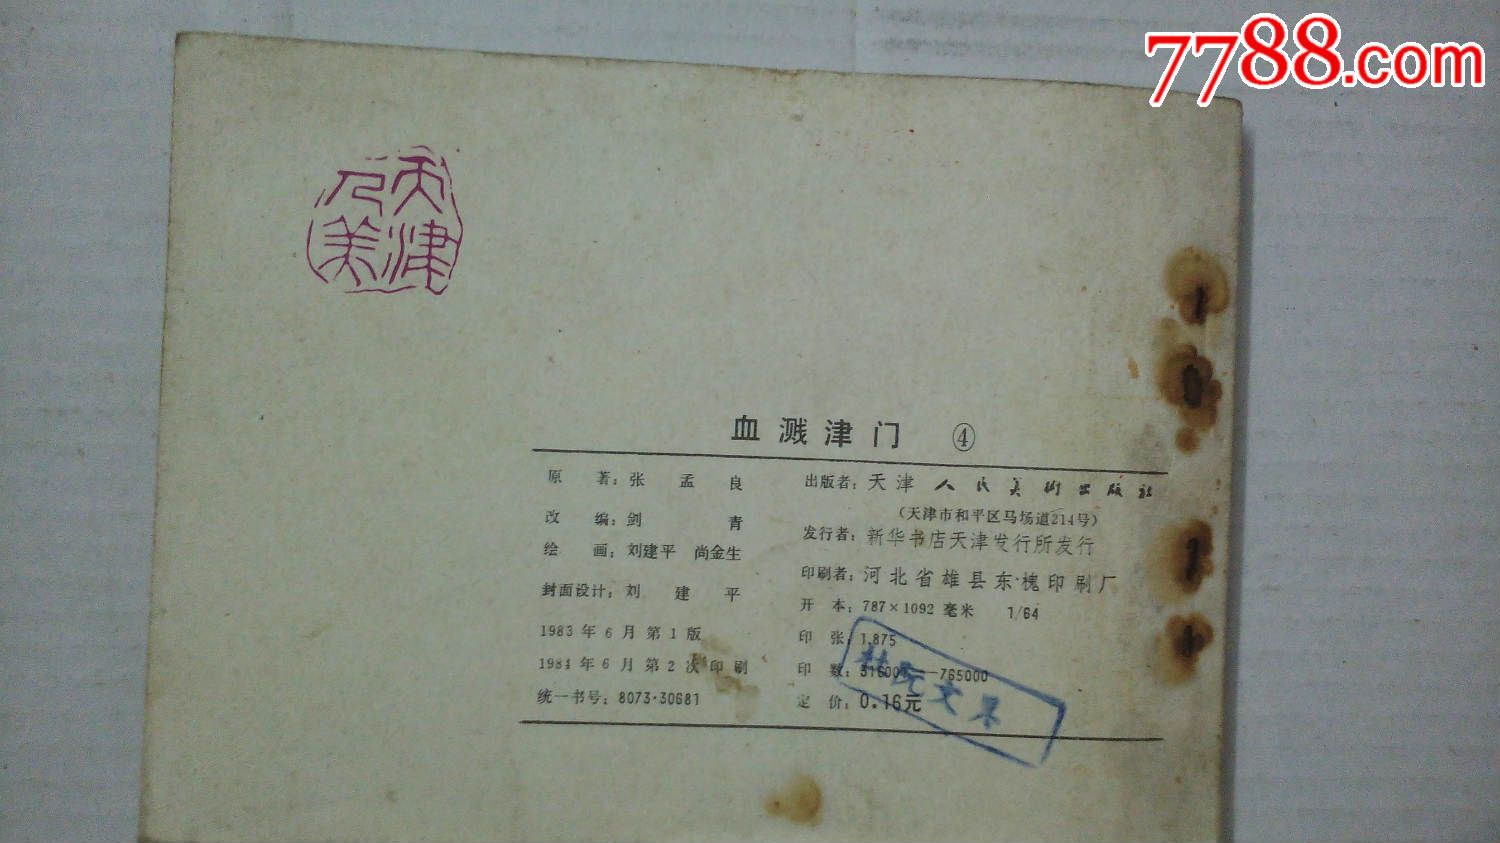 7788.com
天津
人美
血溅津门 ④
原著：张孟良
改编：剑青
绘画：刘建平 尚金生
封面设计：刘建平
1983年6月第1版
1984年6月第2次印刷
统一书号：8073·30681
出版者：天津人民美术出版社
（天津市和平区马场道214号）
发行者：新华书店天津发行所发行
印刷者：河北省雄县东·槐印刷厂
开本：787×1092毫米 1/64
印张：1.875
印数：316001—765000
定价：0.16元